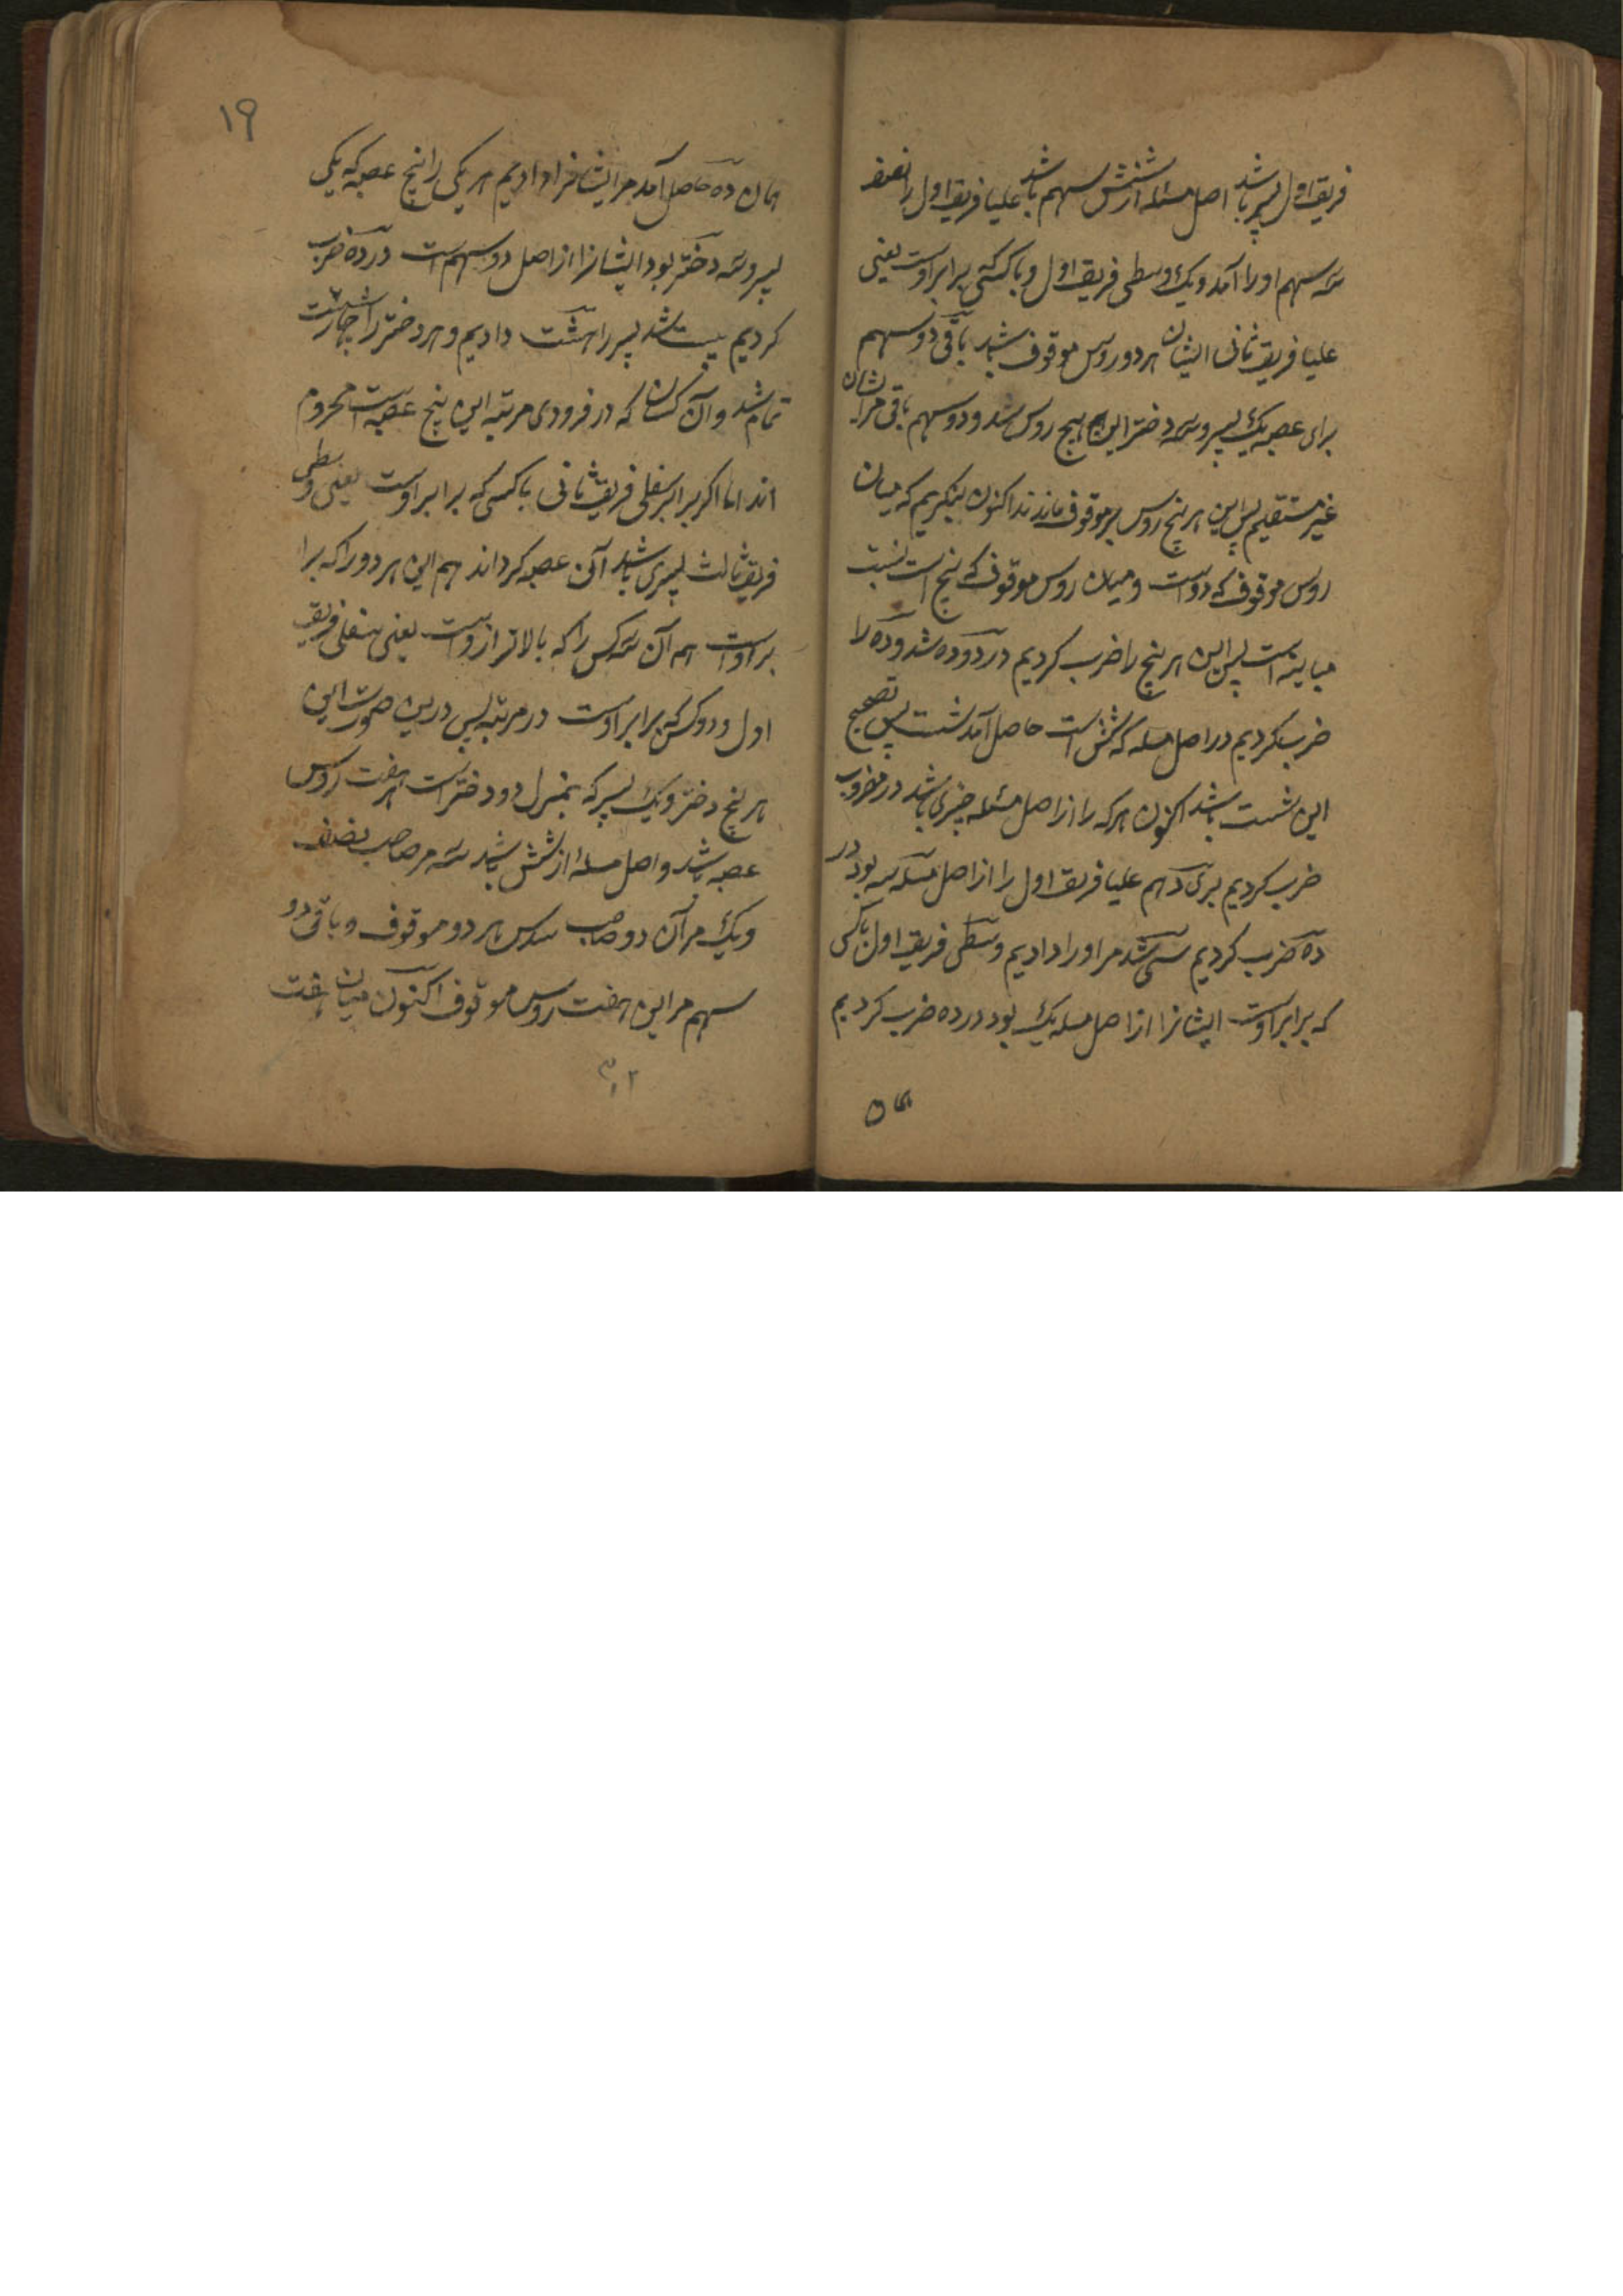 فریق اول پسر باشد اصل مسئله از شش سهم باشد علیا فریق اول را نصف
سه سهم او را آمد و یک وسطی فریق اول و با کسی که برابر اوست یعنی
علیا فریق ثانی ایشان هر دو روس موقوف شد باقی دو سهم
برای عصبه یک پسر و سه دختر این پنج روس شد و دو سهم باقی مر ایشان
غیر مستقیم پس این هر پنج روس موقوف ماندند اکنون بنگریم که میان
روس موقوف که دو است و میان روس موقوف که پنج است نسبت
مباینه است پس این هر پنج را ضرب کردیم در دو ده شد و ده را
ضرب کردیم در اصل مسله که شش است حاصل آمد شست پس تصحیح
این شست باشد اکنون هر که را از اصل مسئله چیزی باشد در مضروب
ضرب کردیم برای دهم علیا فریق اول را از اصل مسئله سه بود در
ده ضرب کردیم سی شد مر او را دادیم وسطی فریق اول با کسی
که برابر اوست ایشانرا از اصل مسله یک بود در ده ضرب کردیم
همان
۱۹
همان ده حاصل آمد مر ایشانرا دادیم هر یکی را پنج عصبه که یکی
پسر و سه دختر بود ایشانرا از اصل دو سهم است در ده ضرب
کردیم بیست شد پسر را هشت دادیم و هر دختر را چهار شست
تمام شد و آن کسان که در فرودی مرتبه این پنج عصبه است محروم
اند اما اگر برابر سفلی فریق ثانی با کسی که برابر اوست یعنی وسطی
فریق ثالث پسری باشد آن عصبه گرداند هم این هر دو را که برا
بر اوست هم آن سه کس را که بالاتر ازوست یعنی سفلی فریق
اول و دو کس که برابر اوست در مرتبه پس درین صورت این
هر پنج دختر و یک پسر که بمنزل دو دختر است هفت روس
عصبه باشد و اصل مسله از شش باشد سه مر صاحب نصف
و یک مر آن دو صاحب سدس هر دو موقوف و باقی دو
سهم مر این هفت روس موقوف اکنون میان هفت